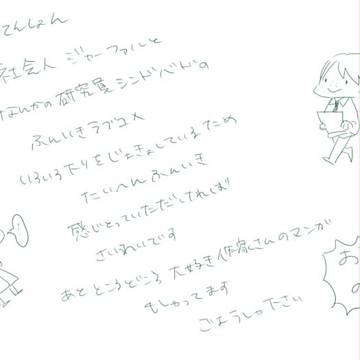 てんしょん
社会人 ジャーファルと
なんかの研究員シンドバドの
ふんいきラブコメ
いろいろたりをじょきょしているため
たいへんふんいき
感じとっていただだしてれば
さいわいです
あと ところどころ 大好き作家さんのマンガ
もじってます
ごりょうしょう下さい
お
の